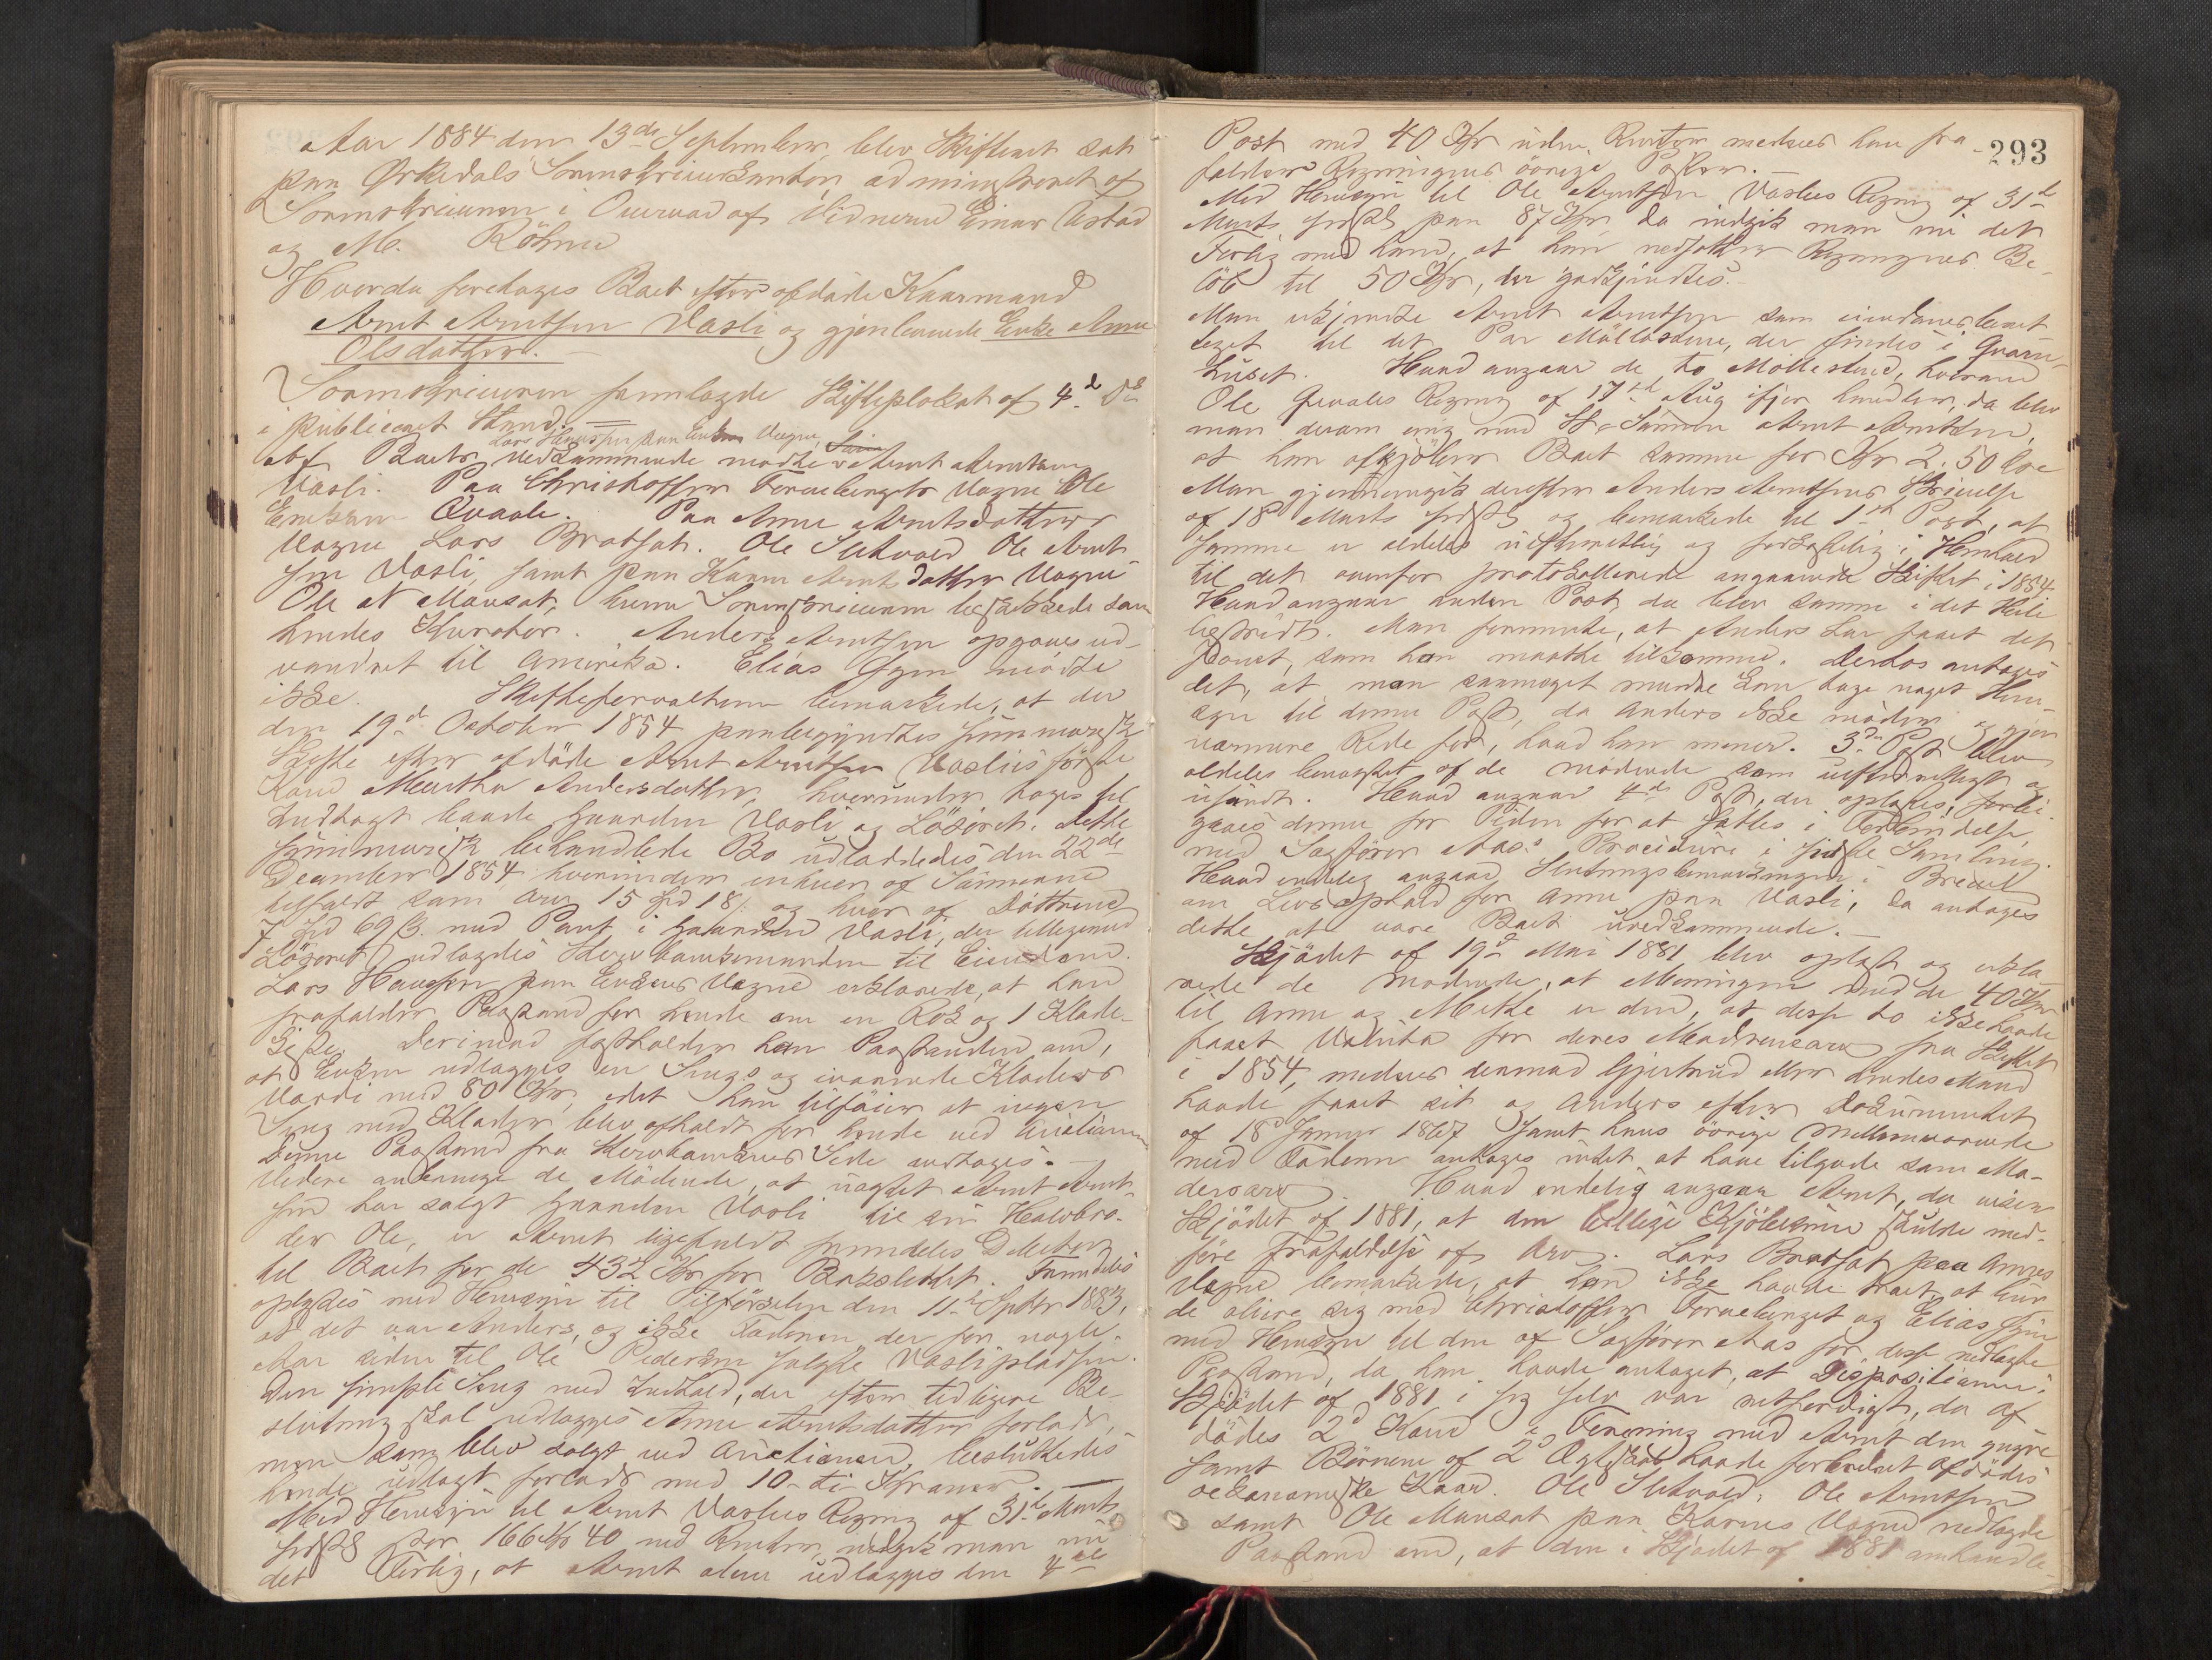 Aar 1884 den 13de September blev Skifteret sat
paa Ørkedals Sorenskriverkontor administreret af
Sorenskriveren i Overvær af Vidnerne Einar Ustad
og M. Röhme
Hvorda foretoges Boet efter afdøde Kaarmand
Arnt Arntsen Vasli og gjenlevende Enke Anne
Olsdatter.
Sorenskriveren fremlagde Skifteplakat af 4de ds
i publiceret Stand.
Lars Hansen paa Enkens Vegne,
Af Boets Vedkommende mødte Arnt Arntsen
Vasli. Paa Christoffer Vegne Ole
Eriksen Qvaale. Paa Anne Arntsdatters
Vegne Lars Bratset. Ole Slitvold Ole Arnt-
sen Vasli, samt paa Karen Arntsdatter Vegne
Ole A Mauset, hvem Sorenskriveren beskikkede som
hendes Kurator. Anders Arntsen opgaves ud-
vandret til Amerika. Elias mødte
ikke. Skifteforvalteren bemærkede, at der
den 19de October 1854 paabegyndtes summarisk
Skifte efter afdøde Arnt Arntsen Vaslis første
Kone Martha Andersdatter, hvorunder toges til
Indtægt baade Gaarden Vasli og Løsøret. Dette
summarisk behandlede Bo udloddedes den 22de
December 1854 hvorunder enhver af Sønnerne
tilfaldt som Arv 15 Spd 18 ß og hver af Døttrene
7 Spd 69 ß. med Pant i Gaarden Vasli, der tilligemed
Løsøret udlagdes Stervboenkemanden til Eiendom.
Lars Hansen paa Enkens Vegne erklærede, at han
frafalder Paastand for hende om en Rok og 1 Klæde-
kiste. Derimod fastholder han Paastanden om,
at Enken udlægges en Sengs og iværende Klæders
Værdi med 80 Kr, idet han tilføier at ingen
Seng med Klæder blev afholdt for hende ved Auctionen
Denne Paastand fra Stervboenkens Side antages.
Videre anbringe de Mødende, at uagtet Arnt Arnt-
sen har solgt Gaarden Vasli til sin Halvbro-
der Ole, er Arnt ligefuldt fremdeles Debitor
til Boet for de 432 Kr for . Fremdeles
oplystes med Hensyn til Tilførselen den 11te Septbr 1883,
at det var Anders, og ikke Faderen der for nogle
Aar siden til Ole Pedersen solgte Vaslipladsen.
Den simple Seng med Indhold, der efter tidligere Be-
slutning skal udlægges Anne Arntsdatter forlods,
men som blev solgt ved Auctionen, besluttedes
hende udlagt forlods med 10 - ti Kroner.
Med Hensyn til Arnt Vaslis Regning af 31te Marts
sidstl stor 166 Kr 40 med Renter, indgik man nu
det Forlig, at Arnt alene udlægges den 4de
293
Post med 40 Kr uden Renter medens han fra-
falder Regningens övrige Poster.
Med Hensyn til Ole Arntsen Vaslis Regning af 31te
Marts sidstl paa 87 Kr, da indgik man nu det
Forlig med ham, at han nedsætter Regningens Be-
löb til 50 Kr, der godkjendtes.
Man erkjendte Arnt Arntsen som eiendomsberet-
tiget til det Par Möllestene, der findes i Qværn-
huset. Hvad angaar de to Möllestene, hvorom
Ole Qvaales Regning af 17de Aug ifjor handler, da blev
man derom enig med Sönnen Arnt Arntsen,
at han afkjöber Boet samme for Kr 2. 50 Øre
Man gjennemgik derefter Anders Arntsens Skrivelse
af 18 Marts sidstl og bemærkede til 1ste Post, at
samme er aldeles uefterrettelig og i Henhold
til det ovenfor protokollerede angaaende Skiftet i 1854.
Hvad angaar anden Post, da blev samme i det Hele
bestridt. Man formente, at Anders har faaet det
, som han maatte tilkomme. Derhos antages
det, at man saameget mindre kan tage noget Hen-
syn til denne Post, da Anders ikke møder og gjør
nærmere Rede for, hvad han mener. 3die Post blev
aldeles benægtet af de mødende som uefterretteligt og
usandt. Hvad angaar 4de Post, der oplæstes, forbi-
gaaes denne for Tiden for at sættes i Forbindelse
med Sagfører Aas's Procedure i sidste Samling.
Hvad endelig angaar Slutningsbemærkningen i Brevet
om Livsophold for Anne paa Vasli, da antages
dette at være Boet uvedkommende.
Skjødet af 19de Mai 1881 blev oplæst og erklæ-
rede de Mødende, at Meningen med de 40 Kr
til Anne og Mette er den, at disse to ikke havde
faaet Valuta for deres Mødrenearv fra Skiftet
i 1854, medens derimod Gjertrud eller hendes Mand
havde faaet sit og Anders efter Dokumentet
af 18de Januar 1867 samt hans övrige Mellemværende
med Faderen antages intet at have tilgode som Mø-
drenearv. Hvad endelig angaar Arnt, da viser
Skjödet af 1881, at den billige Kjöbesum skulde med-
føre Frafaldelse af Arv. Lars Bratset paa Annes
Vegne bemærkede, at han ikke havde troet, at bur-
de sig med Christoffer og Elias
med Hensyn til den af Sagfører Aas for disse nedlagte
Paastand, da han havde antaget, at Dispositionen i
Skjødet af 1881 i sig selv var retfærdigt, da af-
dødes 2de Kone i Forening med Arnt den yngre
samt Börnene af 2de Ægteskab havde forbedret Afdødes
oekonomiske Kaar. Ole Slitvold, Ole Arntsen
samt Ole Mauset paa Karens Vegne nedlagde
Paastand om, at den i Skjødet af 1881 omhandle-